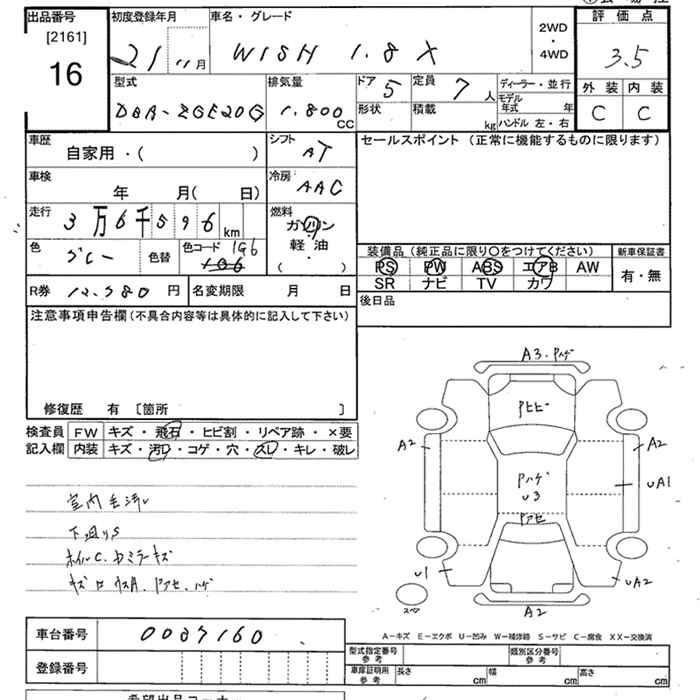 出品番号 初度登録年月 車名・グレード 2WD・4WD 評価点
[2161]
16 21 11月 WISH 1.8 X 3.5
型式 排気量 ドア 5 定員 7人 ディーラー・並行 外装 内装
DBA-ZGE20G 1.800CC 形状 積載 kg モデル年式 年 C C
ハンドル 左・右
車歴 シフト セールスポイント (正常に機能するものに限ります)
自家用・( ) AT
車検 冷房
年 月( 日) AAC
走行 燃料
3万6千596km ガソリン
軽油
(・)
色 グレー 色替 色コード 1G6
装備品(純正品に限り○をつけてください) 新車保証書
PS PW ABS エアB AW 有・無
SR ナビ TV カワ
R券 12,980円 名変期限 月 日 後日品
注意事項申告欄(不具合内容等は具体的に記入して下さい)
修復歴 有 〔箇所 〕
検査員 FW キズ・飛石・ヒビ割・リペア跡・×要
記入欄 内装 キズ・汚レ・コゲ・穴・スレ・キレ・破レ
室内毛汚レ
下廻りS
ホイルC.
A3.Pハゲ
Pヒビ
A2
A2
Pハゲ
U3
UA1
Pアセ
U1
UA2
スペア
A2
A-キズ E-エクボ U-凹み W-補修跡 S-サビ C-腐食 XX-交換済
車台番号 0037160
型式指定番号 参考 類別区分番号 参考
登録番号
車庫証明用 参考 長さ cm 幅 cm 高さ cm
希望出品コーナー